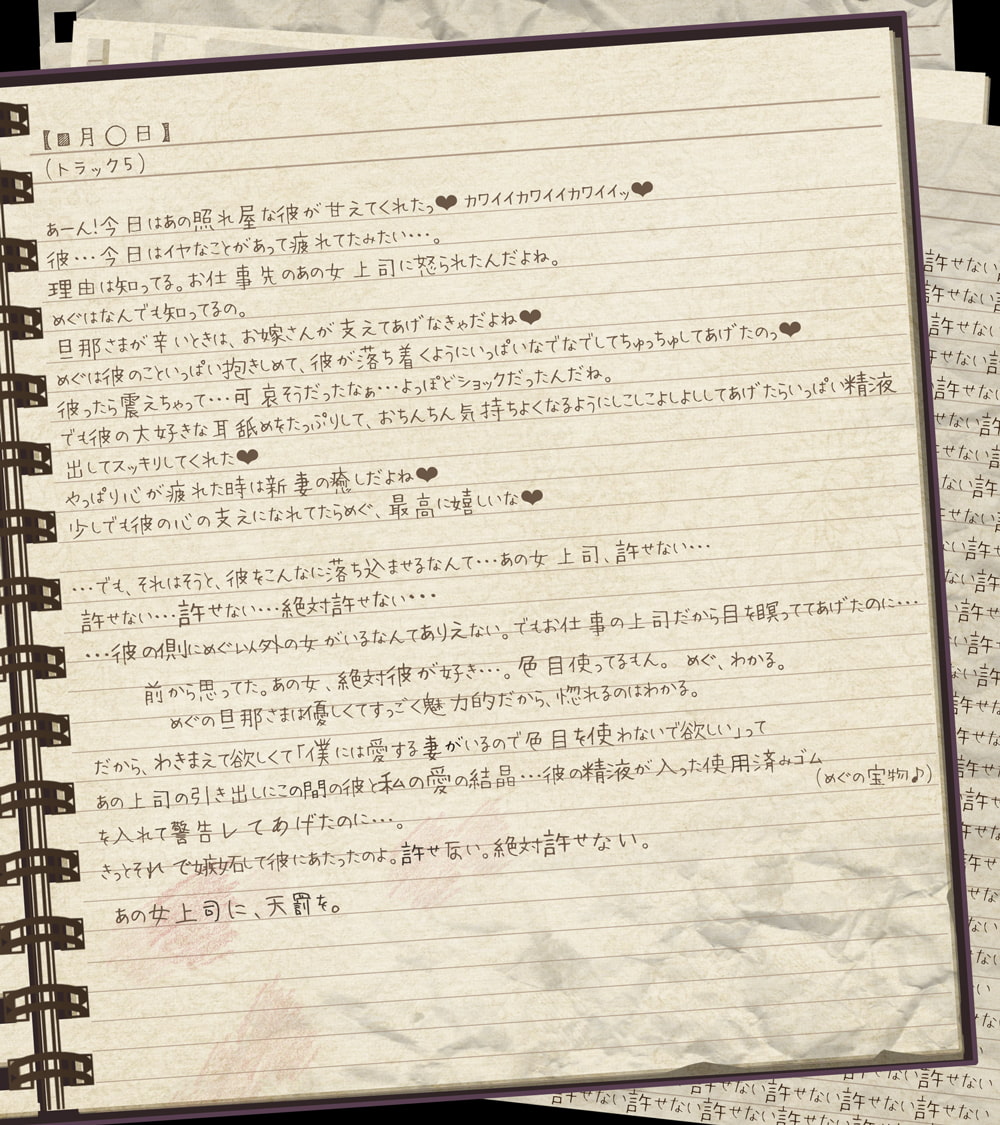 【■月○日】
(トラック5)
あーん!今日はあの照れ屋な彼が甘えてくれたっ♥ カワイイカワイイカワイイッ♥
彼…今日はイヤなことがあって疲れてたみたい…。
理由は知ってる。お仕事先のあの女上司に怒られたんだよね。
めぐはなんでも知ってるの。
旦那さまが辛いときは、お嫁さんが支えてあげなきゃだよね♥
めぐは彼のこといっぱい抱きしめて、彼が落ち着くようにいっぱいなでなでしてちゅっちゅしてあげたのっ♥
彼ったら震えちゃって…可哀そうだったなぁ…よっぽどショックだったんだね。
でも彼の大好きな耳舐めをたっぷりして、おちんちん気持ちよくなるようにしこしこよしよししてあげたらいっぱい精液
出してスッキリしてくれた♥
やっぱり心が疲れた時は新妻の癒しだよね♥
少しでも彼の心の支えになれてたらめぐ、最高に嬉しいな♥
…でも、それはそうと、彼をこんなに落ち込ませるなんて…あの女上司、許せない…
許せない…許せない…絶対許せない…
…彼の側にめぐ以外の女がいるなんてありえない。でもお仕事の上司だから目を瞑っててあげたのに…
前から思ってた。あの女、絶対彼が好き…。色目使ってるもん。 めぐ、わかる。
めぐの旦那さまは優しくてすっごく魅力的だから、惚れるのはわかる。
だから、わきまえて欲しくて「僕には愛する妻がいるので色目を使わないで欲しい」って
あの上司の引き出しにこの間の彼と私の愛の結晶…彼の精液が入った使用済みゴム
(めぐの宝物♪)
を入れて警告してあげたのに…。
きっとそれで嫉妬して彼にあたったのよ。許せない。絶対許せない。
あの女上司に、天罰を。
許せない
許せない
許せない
許せない
許せない
許せない許せない許せない許せない許せない許せない
許せない許せない許せない許せない許せない